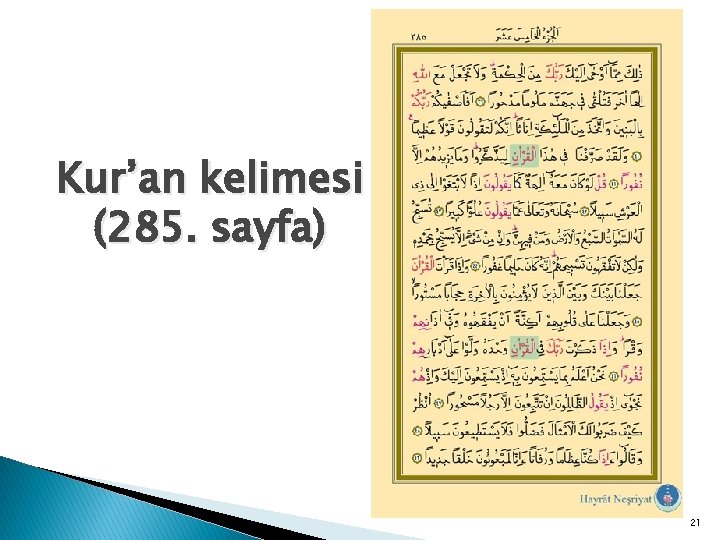 Kur’an kelimesi
(285. sayfa)
اَلْجُزْءُ الْخَامِسَ عَشَرَ ٢٨٥
ذٰلِكَ مِمَّٓا اَوْحٰٓى اِلَيْكَ رَبُّكَ مِنَ الْحِكْمَةِ وَلَا تَجْعَلْ مَعَ اللّٰهِ
اِلٰهًا اٰخَرَ فَتُلْقٰى فٖى جَهَنَّمَ مَلُومًا مَدْحُورًا ۝ اَفَاَصْفٰيكُمْ رَبُّكُمْ
بِالْبَنٖينَ وَاتَّخَذَ مِنَ الْمَلٰٓئِكَةِ اِنَاثًا اِنَّكُمْ لَتَقُولُونَ قَوْلًا عَظٖيمًا
۝ وَلَقَدْ صَرَّفْنَا فٖى هٰذَا الْقُرْاٰنِ لِيَذَّكَّرُوا وَمَا يَزٖيدُهُمْ اِلَّا
نُفُورًا ۝ قُلْ لَوْ كَانَ مَعَهُٓ اٰلِهَةٌ كَمَا يَقُولُونَ اِذًا لَابْتَغَوْا اِلٰى ذِى
الْعَرْشِ سَبٖيلًا ۝ سُبْحَانَهُ وَتَعَالٰى عَمَّا يَقُولُونَ عُلُوًّا كَبٖيرًا ۝ تُسَبِّحُ
لَهُ السَّمٰوَاتُ السَّبْعُ وَالْاَرْضُ وَمَنْ فٖيهِنَّ وَاِنْ مِنْ شَىْءٍ اِلَّا يُسَبِّحُ بِحَمْدِهٖ
وَلٰكِنْ لَا تَفْقَهُونَ تَسْبٖيحَهُمْ اِنَّهُ كَانَ حَلٖيمًا غَفُورًا ۝ وَاِذَا قَرَاْتَ الْقُرْاٰنَ
جَعَلْنَا بَيْنَكَ وَبَيْنَ الَّذٖينَ لَا يُؤْمِنُونَ بِالْاٰخِرَةِ حِجَابًا مَسْتُورًا
۝ وَجَعَلْنَا عَلٰى قُلُوبِهِمْ اَكِنَّةً اَنْ يَفْقَهُوهُ وَفٖٓى اٰذَانِهِمْ
وَقْرًا وَاِذَا ذَكَرْتَ رَبَّكَ فِى الْقُرْاٰنِ وَحْدَهُ وَلَّوْا عَلٰٓى اَدْبَارِهِمْ
نُفُورًا ۝ نَحْنُ اَعْلَمُ بِمَا يَسْتَمِعُونَ بِهٖٓ اِذْ يَسْتَمِعُونَ اِلَيْكَ وَاِذْ هُمْ
نَجْوٰٓى اِذْ يَقُولُ الظَّالِمُونَ اِنْ تَتَّبِعُونَ اِلَّا رَجُلًا مَسْحُورًا ۝ اُنْظُرْ
كَيْفَ ضَرَبُوا لَكَ الْاَمْثَالَ فَضَلُّوا فَلَا يَسْتَطٖيعُونَ سَبٖيلًا
۝ وَقَالُٓوا ءَاِذَا كُنَّا عِظَامًا وَرُفَاتًا ءَاِنَّا لَمَبْعُوثُونَ خَلْقًا جَدٖيدًا ۝
Hayrât Neşriyat
21